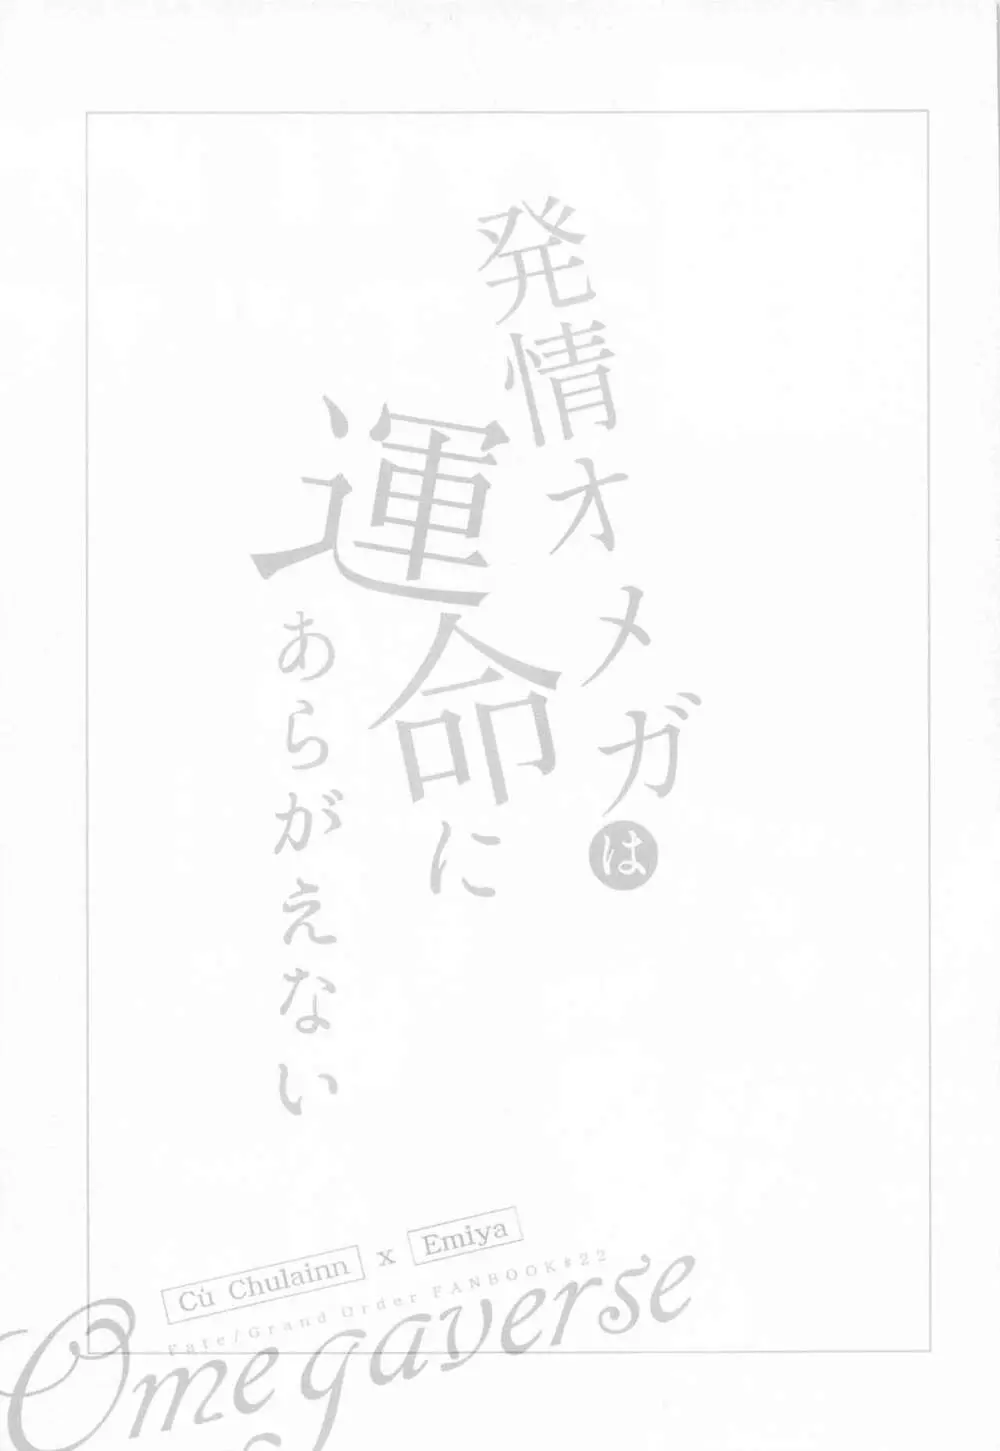 発情オメガは
運命に
あらがえない
Cú Chulainn x Emiya
Fate/Grand Order FANBOOK#22
Omegaverse